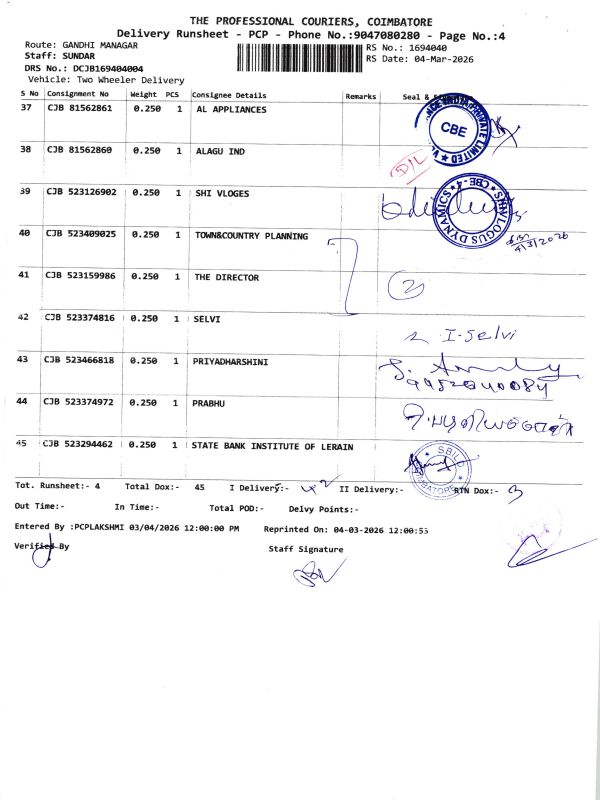 THE PROFESSIONAL COURIERS, COIMBATORE
Delivery Runsheet - PCP - Phone No.:9047080280 - Page No.:4
Route: GANDHI MANAGAR
RS No.: 1694040
Staff: SUNDAR
RS Date: 04-Mar-2026
DRS No.: DCJB169404004
Vehicle: Two Wheeler Delivery
S No Consignment No Weight PCS Consignee Details Remarks Seal &
37 CJB 81562861 0.250 1 AL APPLIANCES
CBE
38 CJB 81562860 0.250 1 ALAGU IND
D/L
39 CJB 523126902 0.250 1 SHI VLOGES
SHIVLOGUS DYNAMICS CBE-4
40 CJB 523409025 0.250 1 TOWN&COUNTRY PLANNING
4/3/2026
41 CJB 523159986 0.250 1 THE DIRECTOR
2
42 CJB 523374816 0.250 1 SELVI
I-Selvi
43 CJB 523466818 0.250 1 PRIYADHARSHINI
9952040084
44 CJB 523374972 0.250 1 PRABHU
45 CJB 523294462 0.250 1 STATE BANK INSTITUTE OF LERAIN
SBILD COIMBATORE
Tot. Runsheet:- 4 Total Dox:- 45 I Delivery:- 42 II Delivery:- RTN Dox:- 3
Out Time:- In Time:- Total POD:- Delvy Points:-
Entered By :PCPLAKSHMI 03/04/2026 12:00:00 PM Reprinted On: 04-03-2026 12:00:53
Verified By Staff Signature